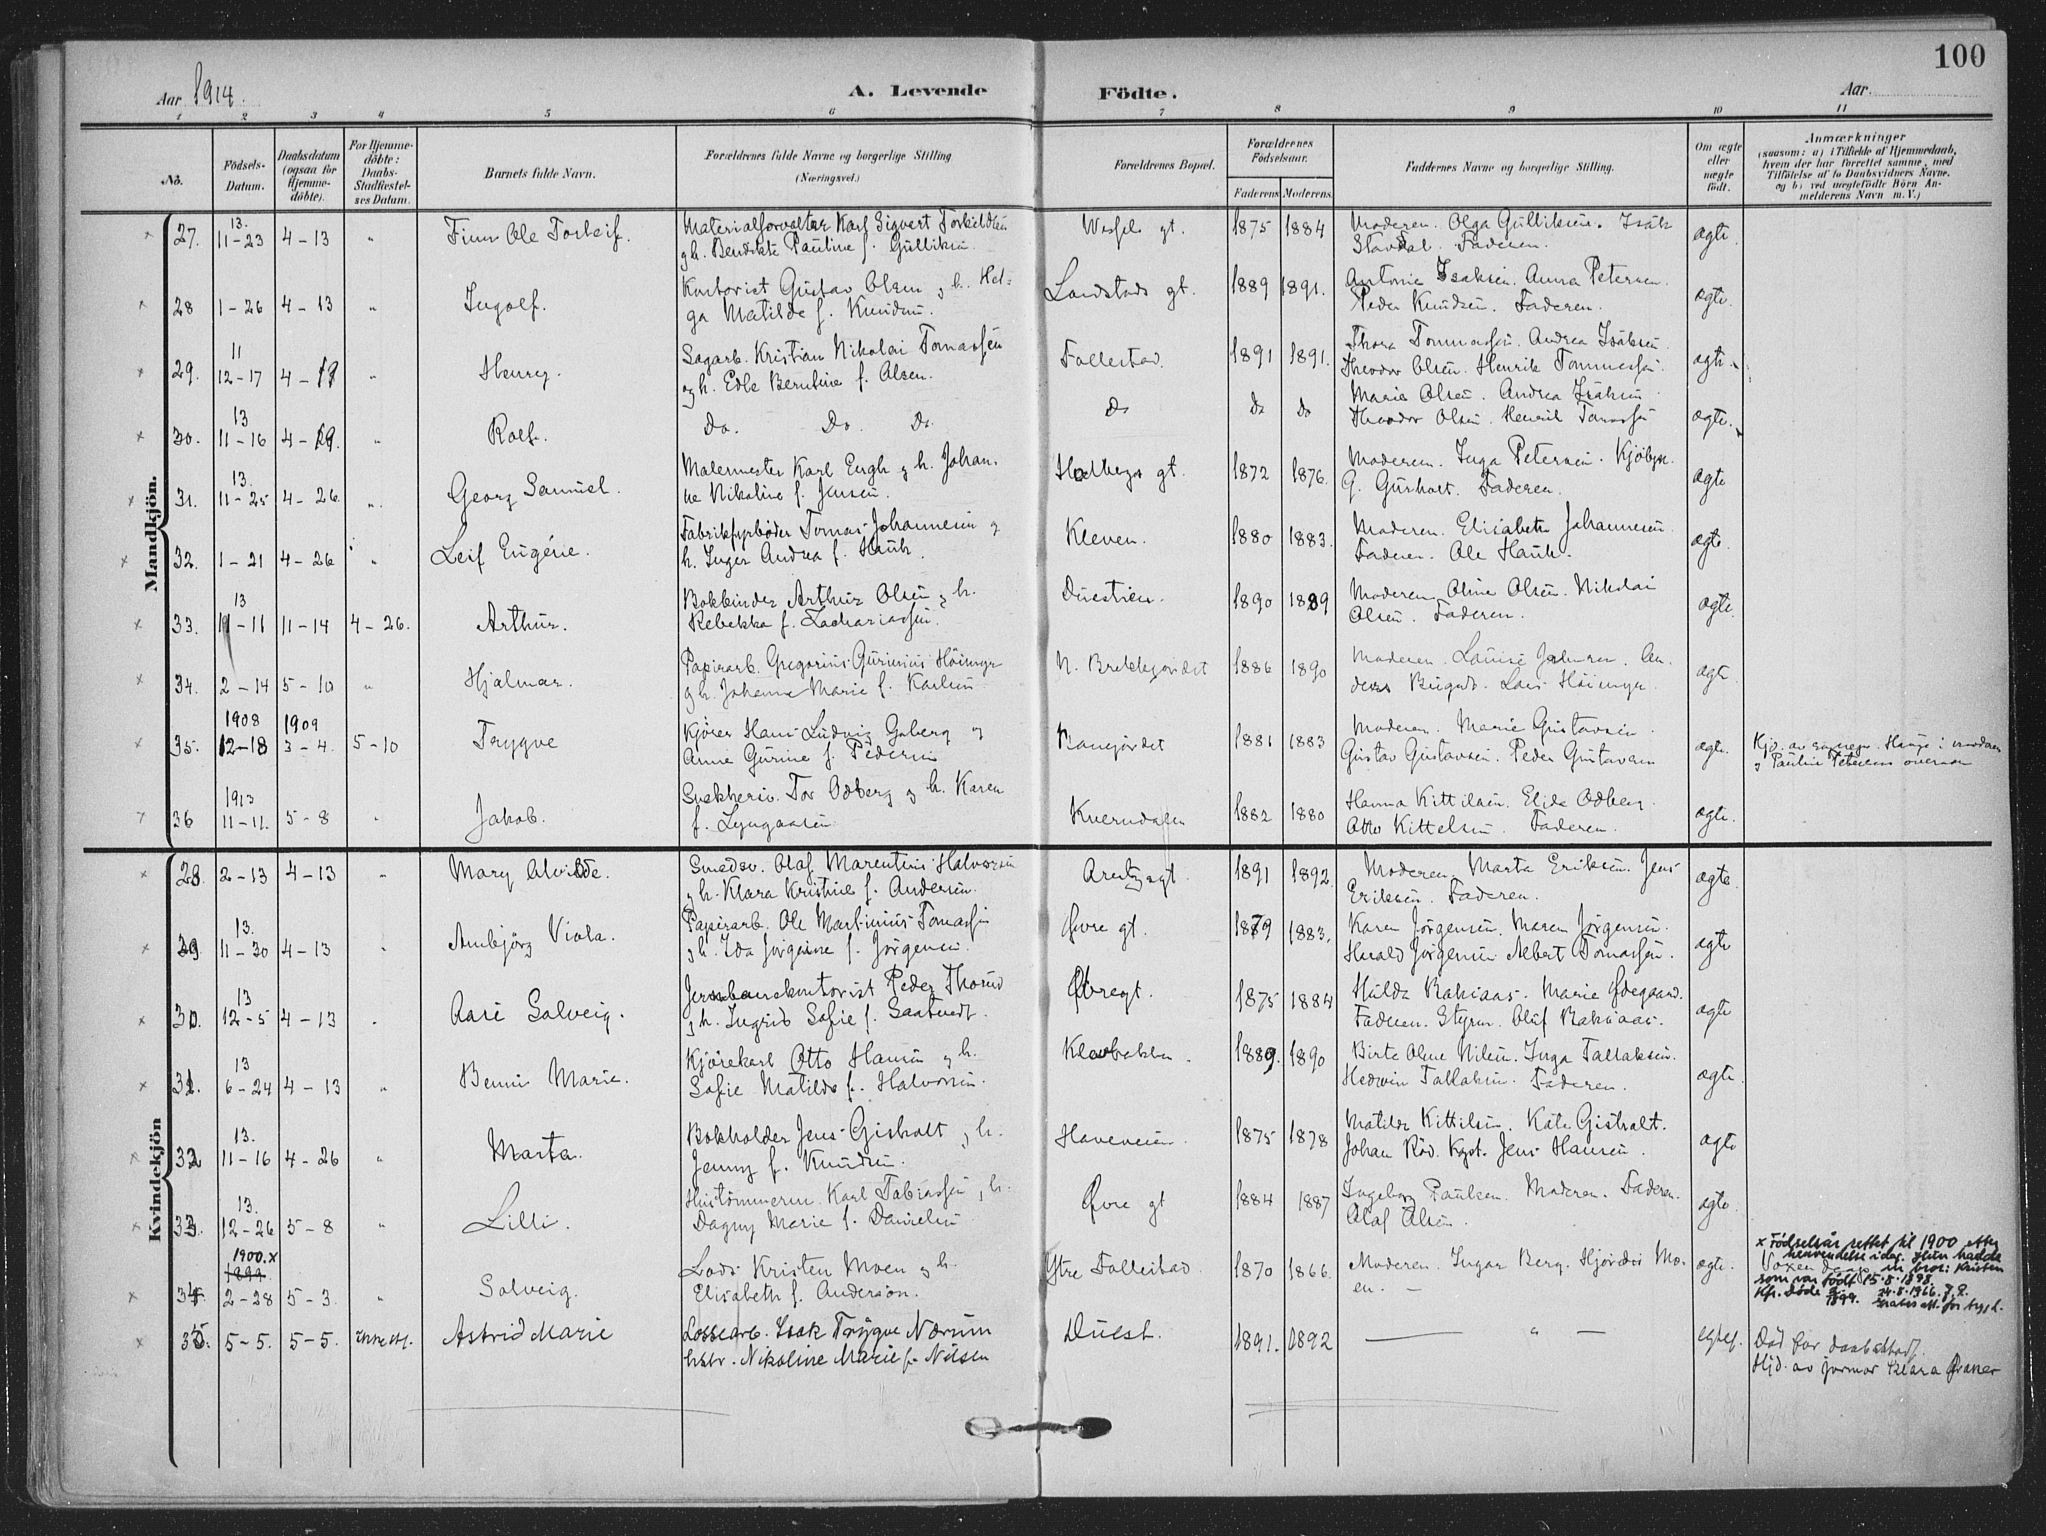 100
Aar 1914.
A. Levende Födte.
Aar
1 2 3 4 5 6 7 8 9 10 11
No.
Födsels-Datum.
Daabsdatum (ogsaa for Hjemmedöbte).
For Hjemmedöbte: Daabs-Stadfæstelses Datum.
Barnets fulde Navn.
Forældrenes fulde Navne og borgerlige Stilling (Næringsvei.)
Forældrenes Bopæl.
Forældrenes Födselsaar.
Faderens Moderens
Faddernes Navne og borgerlige Stilling.
Om ægte eller uægte födt.
Anmærkninger
(saasom: a) i Tilfælde af Hjemmedaab, hvem der har forrettet samme, med Tilföielse af to Daabsvidners Navne, og b) ved uægtefödte Börn Anmelderens Navn m. V.)
Mandkjön.
27. 13. 11-23 4-13 " Finn Ole Torleif.
Materialforvalter Karl Sigvert Torkildsen
g h. Bendikte Pauline f. Gulliksen.
1875 1884
Moderen. Olga Gulliksen. Isak
Stavdal. Faderen.
ægte.
28 1-26 4-13 " Ingolf.
Kontorist Gustav Olsen g h. Hel-
ga Matilde f. Knudsen.
Landstads gt. 1889 1891.
Antonie Isaksen. Anna Petersen.
Peder Knudsen. Faderen.
ægte.
29. 11 12-17 4- " Henry.
Sagarb. Kristian Nikolai Tomassen
og h. Edle Berntine f. Olsen.
Follestad 1891 1891.
Thora Tommassen. Andrea Isaksen.
Theodor Olsen. Henrik Tommassen.
ægte.
30. 13 11-16 4-19. " Rolf.
Do. Do. Do.
Do Do Do
Marie Olsen. Andrea Isaksen
Theodor Olsen. Henrik Tomassen
ægte.
31. 13. 11-25 4-26. " Georg Samuel.
Malermester Karl Engh g h. Johan-
ne Nikoline f. Jensen.
Hedbergs gt. 1872 1876.
Moderen. Inga Petersen. Kjöbm.
G. Gisholt. Faderen.
ægte
32. 1-21 4-26 " Leif Eugénie.
Fabrikfyrbøder Tomas Johannesen g
h. Inger Andrea f. Hauk.
Kleven. 1880 1883.
Moderen. Elisabeth Johannesen
Faderen. Ole Hauk.
ægte.
33. 13 11-11 11-14 4-26. Arthur.
Bokbinder Arthur Olsen g h.
Rebekka f. Zachariassen.
Duestien. 1890 1889
Moderen Oline Olsen. Nikolai
Olsen. Faderen.
ægte.
34. 2-14 5-10 " Hjalmar.
Papirarb. Gregorius Gurinius Höimyr
g h. Johanne Marie f. Karlsen
N. Brekkejordet 1886 1890
Moderen. Louise
Lars Höimyr.
ægt.
35. 1908 12-18 1909 3-4. 5-10 Trygve
Kjörer Hans Ludvig Goberg g
Anne Gurine f. Pedersen
1881 1883
Moderen. Marie Gustavsen.
Gustav Gustavsen. Peder Gustavsen
ægte.
36 1913 11-11. 5-8 " Jakob.
Snekkersv. Tor Odberg g h. Karen
f. Lyngaasen
Kverndalen 1882 1880
Hanna Kittilsen. Elida Odberg.
Otto Kittelsen. Faderen.
ægte.
Kvindekjön
28. 2-13 4-13 " Mary Alvilde.
Smedsv. Olaf Marentius Halvorsen
g h. Klara Kristine f. Andersen.
1891 1892.
Moderen. Marta Eriksen. Jens
Eriksen. Faderen.
ægte
29 13. 11-30 4-13 " Arnbjörg Viola.
Papirarb. Ole Martinius Tomassen
g h. Ida Jörgine f. Jörgensen.
Øvre gt. 1879 1883.
Karen Jörgensen. Maren Jörgensen.
Harald Jörgensen Albert Tomassen.
ægte
30. 13 12-5 4-13 " Aase Solveig.
Jernbanekontorist Peder Thorud
g h. Ingrid Sofie f. Saatvedt.
Øvregt. 1875 1884
Hulda Bakaas. Marie Ødegaard.
Faderen. Styrm. Oluf Bakaas.
ægte
31. 13 6-24 4-13 " Benni Marie.
Kjörekarl Otto Hansen g h.
Sofie Matilde f. Halvorsen.
Klovbakken. 1889. 1890
Birte Oline Nilsen. Inga Tallaksen.
Hedwin Tallaksen. Faderen.
ægte.
32 13. 11-16 4-26 " Marta.
Bokholder Jens Gisholt g h.
Jenny f. Knudsen.
Haveveien. 1875 1878
Matilde Kittilsen. Kåte Gisholt.
Johan Röd. Kapt. Jens Hansen.
ægte
33. 13. 12-26 5-8 " Lilli.
Hustömmerm. Karl Tobiassen g h.
Dagny Marie f. Danielsen
Øvre gt 1884 1887
Ingeborg Paulsen. Moderen. Faderen.
Olaf Olsen.
ægte.
34 1900.x 1899 2-28 5-3. " Solveig.
Lods Kristen Moen g h.
Elisabeth f. Anderson.
Ytre Follestad 1870 1866.
Moderen. Ingar Berg. Hjördis Mo-
en. —
ægte.
x Födselsår rettet til 1900 etter
henvendelse idag. Hun hadde
en bror: Kristen
som var född 15.8.1898.
24.8.1966.
35. 5-5. 5-5. Astrid Marie
Lossearb. Isak Trygve Nærum
hstr. Nikoline Marie f. Nilsen
Duest. 1891. 1892
— " —
Död för daabstadf.
Hjd. av jormor Klara